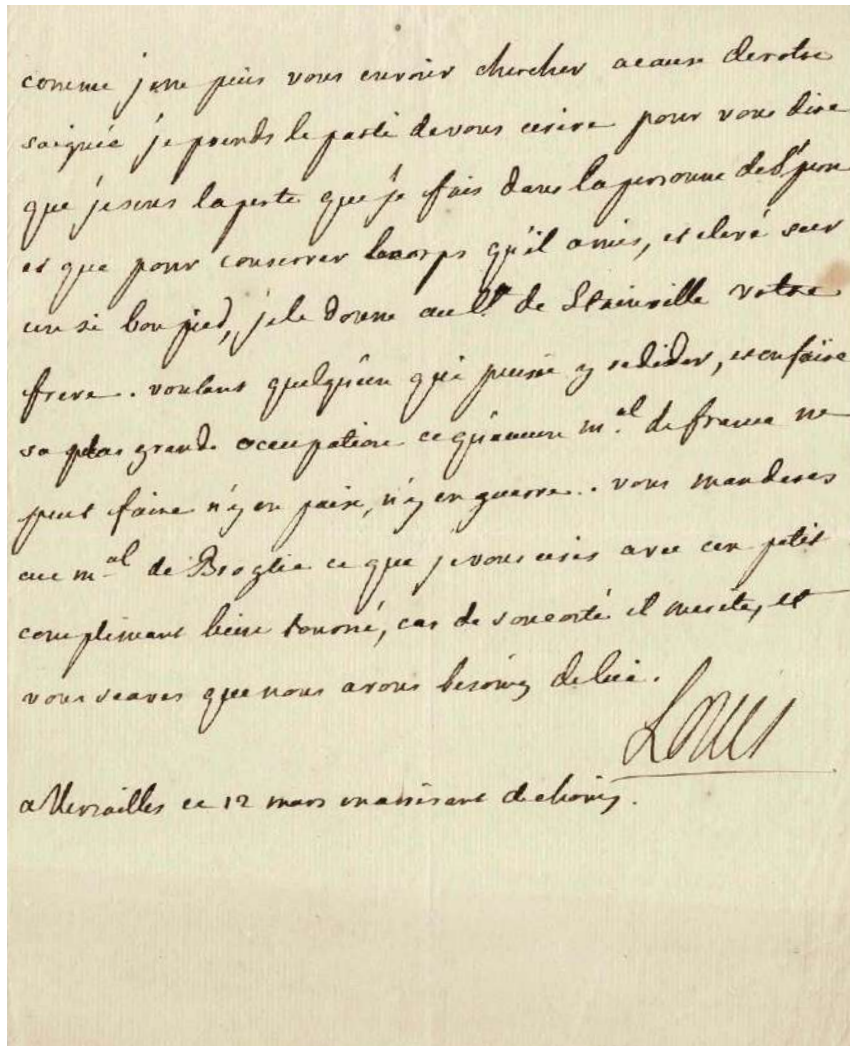 comme je ne puis vous envoier chercher acause devotre
saignée je prends le parti devous ecrire pour vous dire
que je sens la perte que je fais dans la personne de St pern
et que pour conserver le corps qu'il a mis, et elevé sur
un si bon pied, je le donne au Cte de Stainville votre
frere. voulant quelqu'un qui puisse y resider, et en faire
sa plus grande occupation ce qu'aucun mal de france ne
peut faire n'y en paix, n'y en guerre. vous manderes
au mal de Broglie ce que je vous ecris avec un petit
compliment bien tourné, car de son costé il merite, et
vous scaves que nous avons besoing de lui.
Louis
a Versailles ce 12 mars en arrivant de choisy.